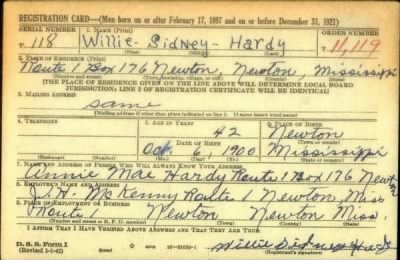 REGISTRATION CARD—(Men born on or after February 17, 1897 and on or before December 31, 1921)
SERIAL NUMBER 1. NAME (Print) ORDER NUMBER
T 118 Willie - Sidney - Hardy 11,119
(First) (Middle) (Last)
2. PLACE OF RESIDENCE (Print)
Route 1 Box 176 Newton, Newton, Mississippi
(Number and street) (Town, township, village, or city) (County) (State)
[THE PLACE OF RESIDENCE GIVEN ON THE LINE ABOVE WILL DETERMINE LOCAL BOARD
JURISDICTION; LINE 2 OF REGISTRATION CERTIFICATE WILL BE IDENTICAL]
3. MAILING ADDRESS
same
[Mailing address if other than place indicated on line 2. If same insert word same]
4. TELEPHONE 5. AGE IN YEARS 6. PLACE OF BIRTH
42 Newton
DATE OF BIRTH
Oct. 6, 1900 Mississippi
7. NAME AND ADDRESS OF PERSON WHO WILL ALWAYS KNOW YOUR ADDRESS
Annie Mae Hardy Route 1 Box 176 Newton
8. EMPLOYER'S NAME AND ADDRESS
J. H. McKenny Route 1 Newton Miss
9. PLACE OF EMPLOYMENT OR BUSINESS
Route 1 Newton Newton Miss.
(Number and street or R. F. D. number) (Town) (County) (State)
I AFFIRM THAT I HAVE VERIFIED ABOVE ANSWERS AND THAT THEY ARE TRUE.
D. S. S. Form 1
(Revised 1-1-42)
Willie Sidney Hardy
(Registrant's signature)